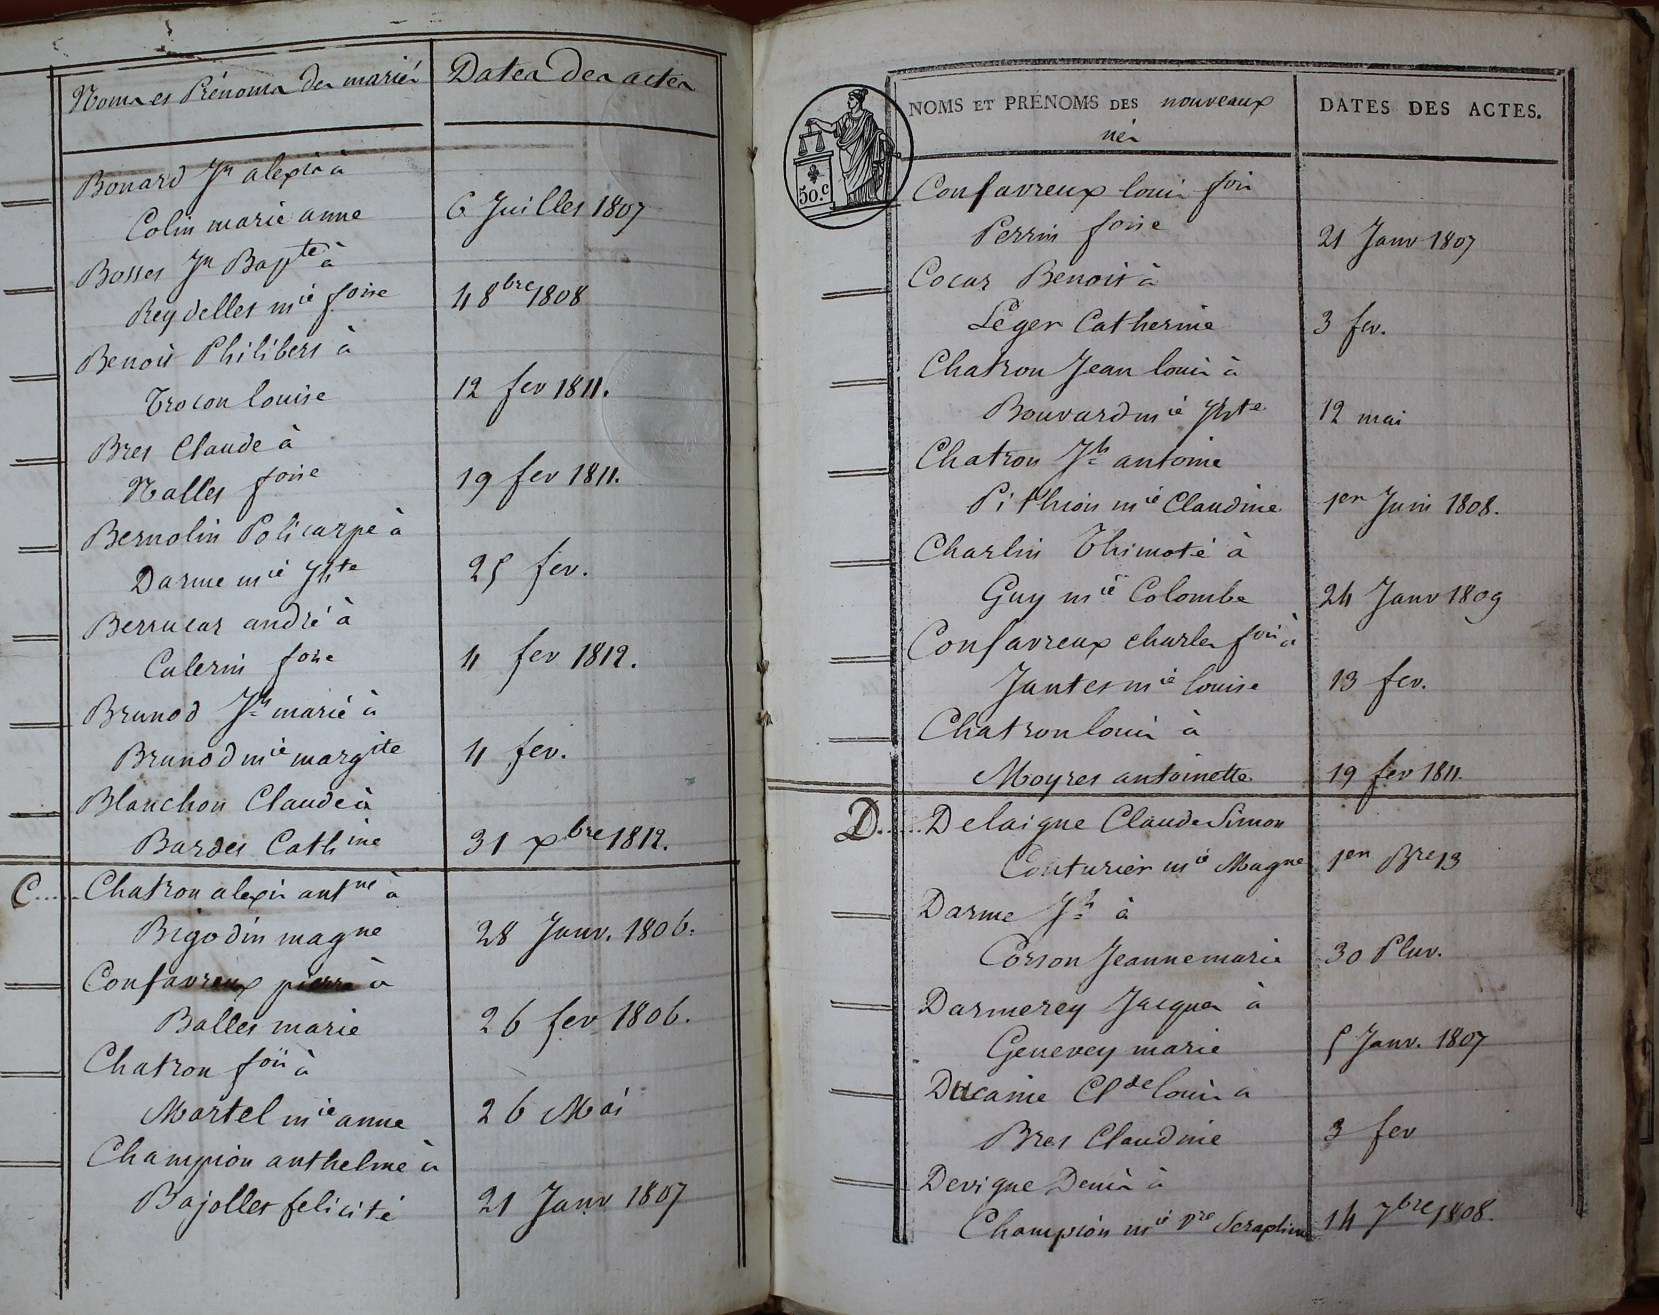 Noms et Prénoms des mariés Dates des actes
Bonard Jn alexis à
Colin marie anne 6 Juillet 1807
Bosset Jn Bapte à
Reydellet mie foise 4 8bre 1808
Benoit Philibert à
Trocon louise 12 fev 1811.
Bret Claude à
Nallet foise 19 fev 1811.
Bernolin Policarpe à
Darme mie Jhte 25 fev.
Berrucas andré à
Calerin foise 4 fev 1812.
Brunod Jh marié à
Brunod mie margite 4 fev.
Blanchon Claude à
Bardet Cathine 31 xbre 1812.
C..... Chatron alexis antne à
Bigodin magne 28 Janv. 1806.
Confavreux pierre à
Ballet marie 26 fev 1806.
Chatron fois à
Martel mie anne 26 Mai
Champion anthelme à
Bajollet felicité 21 Janv 1807
NOMS ET PRÉNOMS DES nouveaux DATES DES ACTES.
nés
50.c
Confavreux louis fois
Perrin foise 21 Janv 1807
Cocar Benoit à
Léger Catherine 3 fev.
Chatron Jean louis à
Bouvard mie Jhte 12 mai
Chatron Jh antoine
Pithion mie Claudine 1er Juin 1808.
Charlin Thimoté à
Guy mie Colombe 24 Janv 1809
Confavreux charles fois à
Jantet mie louise 13 fev.
Chatron louis à
Moyret antoinette 19 fev 1811.
D..... Delaigne Claude Simon
Couturier mie Magne 1er Bre 13
Darme Jh à
Corson Jeanne marie 30 Pluv.
Darmerey Jacques à
Genevey marie 5 Janv. 1807
Ducaine Clde louis à
Bret Claudine 3 fev
Devigne Denis à
Champion mie Pre Seraphine 14 7bre 1808.